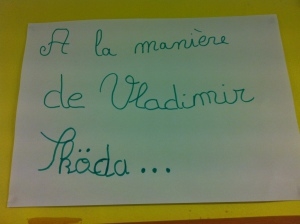 A la manière
de Vladimir
Sköda...